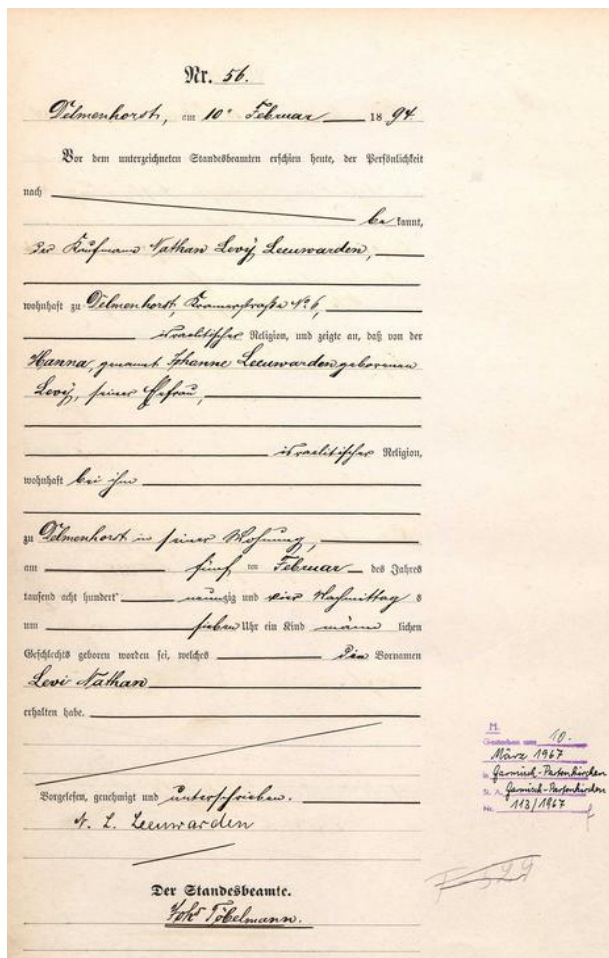 Nr. 56.
Delmenhorst, am 10ᵗ Februar 1894.
Vor dem unterzeichneten Standesbeamten erschien heute, der Persönlichkeit
nach
bekannt,
der Kaufmann Nathan Levÿ Leeuwarden,
wohnhaft zu Delmenhorst, Kramerstraße № 6,
israelitischer Religion, und zeigte an, daß von der
Hanna, genannt Johanne Leeuwarden geborenen
Levÿ, seiner Ehefrau,
israelitischer Religion,
wohnhaft bei ihm
zu Delmenhorst in seiner Wohnung,
am fünf ten Februar des Jahres
tausend acht hundert neunzig und vier Nachmittag s
um sieben Uhr ein Kind männ lichen
Geschlechts geboren worden sei, welches die Vornamen
Levi Nathan
erhalten habe.
Vorgelesen, genehmigt und unterschrieben.
N. L. Leeuwarden
Der Standesbeamte.
Johs Töbelmann.
M.
Gestorben am 10.
März 1967
in Garmisch-Partenkirchen
St. A. Garmisch-Partenkirchen
Nr. 113/1967